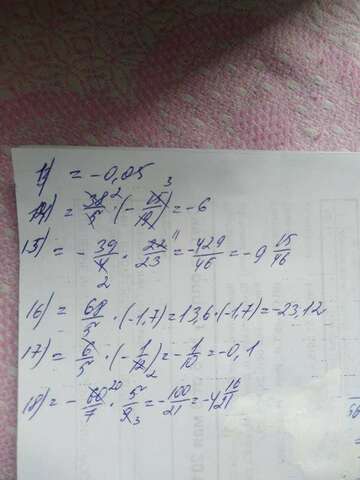 13) = -0,05
14) = 38 2/5 · (- 15 3/19) = -6
15) = - 39/4 2 · 22 11/23 = - 429/46 = -9 15/46
16) = 68/5 · (-1,7) = 13,6 · (-1,7) = -23,12
17) = 6/5 · (- 1/12 2) = - 1/10 = -0,1
18) = - 60 20/7 · 5/9 3 = - 100/21 = -4 16/21